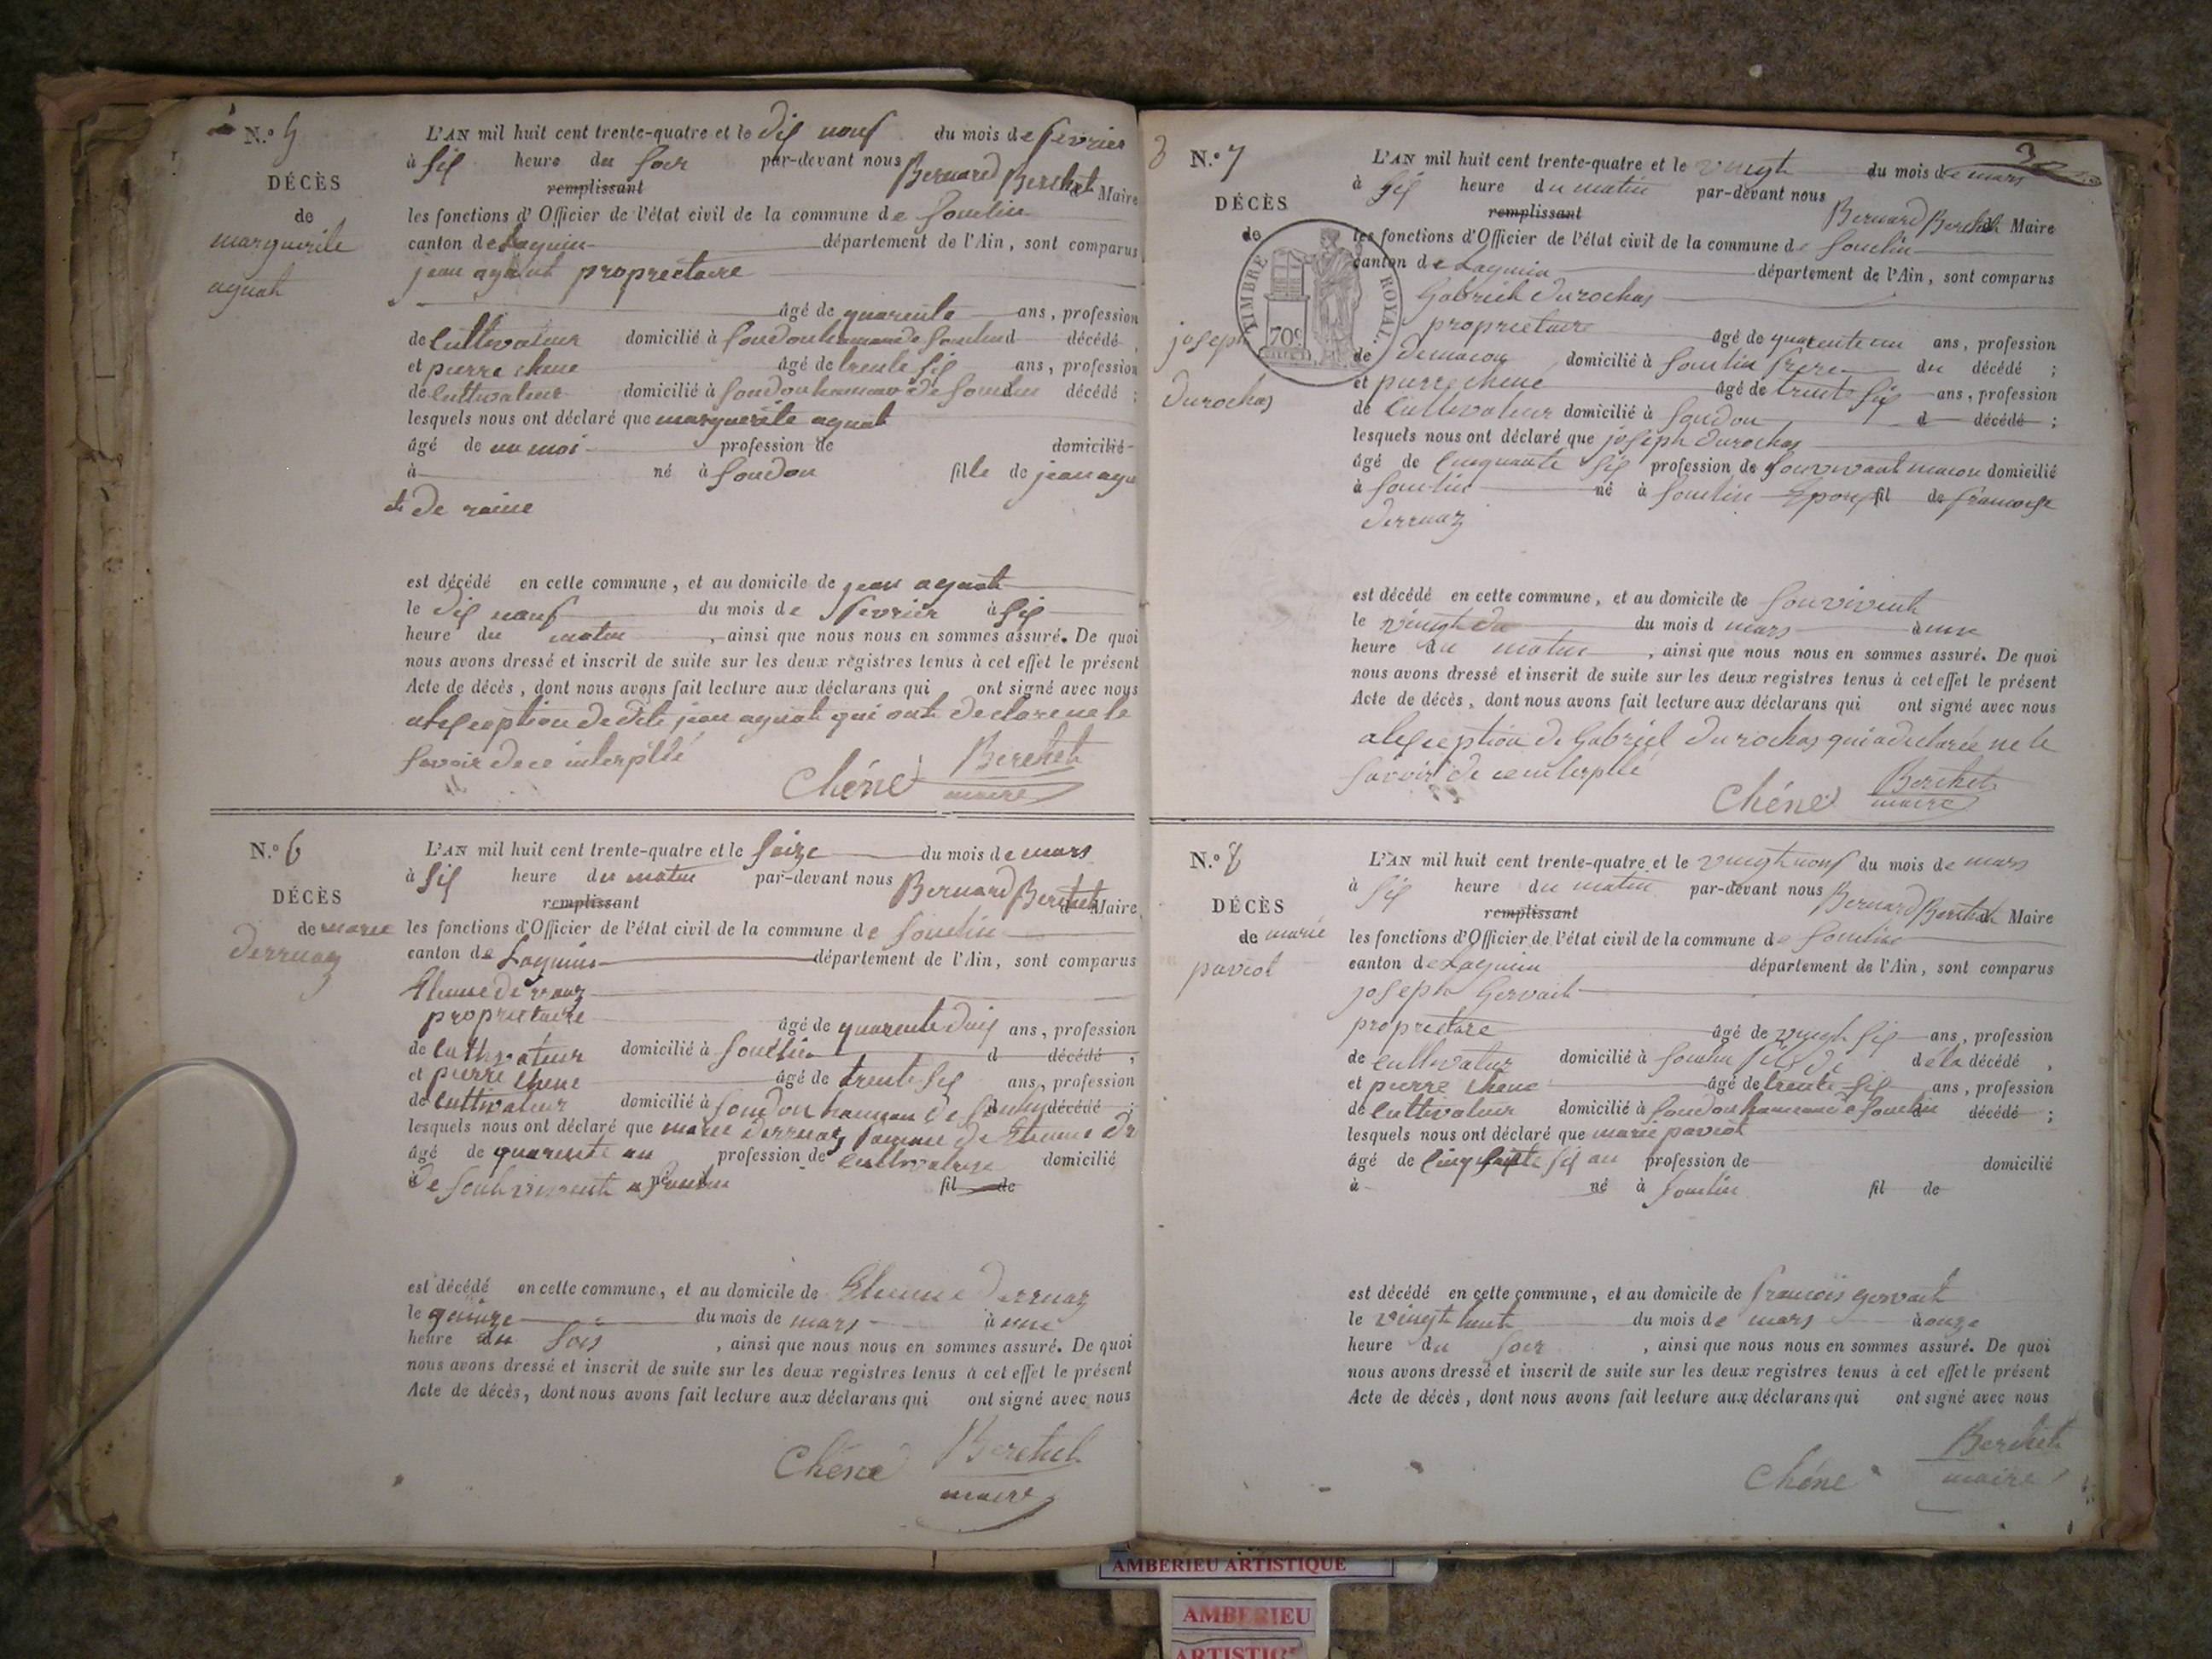 N.º 5
DÉCÈS
de
marguerite
aguat
L'AN mil huit cent trente-quatre et le dis nouf du mois de fevrier
à sis heure du soir par-devant nous Bernard Berthet
remplissant d Maire
les fonctions d'Officier de l'état civil de la commune de Souclin
canton de Lagnieu département de l'Ain, sont comparus
jean aguat proprectaire
âgé de quarente ans, profession
de cultivateur domicilié à Soudon hamau de Souclin d décédé ,
et pierre chene âgé de trente sis ans, profession
de cultivateur domicilié à Soudon hamau de Souclin décédé ;
lesquels nous ont déclaré que marguerite aguat
âgé de un moi profession de domicilié
à né à Soudon fille de jean agu
at de raine
est décédé en cette commune, et au domicile de jean aguat
le dis nouf du mois de fevrier à sis
heure du matin , ainsi que nous nous en sommes assuré. De quoi
nous avons dressé et inscrit de suite sur les deux registres tenus à cet effet le présent
Acte de décès, dont nous avons fait lecture aux déclarans qui ont signé avec nous
alesception de dit jean aguat qui ont declare ne le
savoir de ce interpllé
Chéne Berthet
maire
N.º 6
DÉCÈS
de marie
derruaz
L'AN mil huit cent trente-quatre et le seize du mois de mars
à sis heure du matin par-devant nous Bernard Berthet
remplissant d Maire
les fonctions d'Officier de l'état civil de la commune de Souclin
canton de Lagnieu département de l'Ain, sont comparus
Etienne derruaz
proprietaire âgé de quarente ans, profession
de cultivateur domicilié à Souclin d décédé ,
et pierre chene âgé de trente sis ans, profession
de cultivateur domicilié à Soudon hamau de Souclin décédé ;
lesquels nous ont déclaré que marie derruaz famme de Etienne dr
âgé de quarente an profession de cultivatrise domicilié
à de Souhvivent né à Souclin fil de
est décédé en cette commune, et au domicile de Etienne derruaz
le quinze du mois de mars à une
heure du soir , ainsi que nous nous en sommes assuré. De quoi
nous avons dressé et inscrit de suite sur les deux registres tenus à cet effet le présent
Acte de décès, dont nous avons fait lecture aux déclarans qui ont signé avec nous
Chéne Berthet
maire
3
3
N.º 7
DÉCÈS
de
joseph
durochas
TIMBRE ROYAL.
70c
L'AN mil huit cent trente-quatre et le vingt du mois de mars
à sis heure du matin par-devant nous
remplissant Bernard Berthet d Maire
les fonctions d'Officier de l'état civil de la commune de Souclin
canton de Lagnieu département de l'Ain, sont comparus
Gabriel durochas
proprietaire âgé de quarente un ans, profession
de demacon domicilié à Souclin frere du décédé ;
et pierre chené âgé de trente sis ans, profession
de cultivateur domicilié à Soudon d décédé ;
lesquels nous ont déclaré que joseph durochas
âgé de cinquante sis profession de Souvivant macon domicilié
à Souclin né à Souclin Epous fil de francoise
derruaz
est décédé en cette commune, et au domicile de Souvivent
le vingt du du mois d mars à une
heure du matin , ainsi que nous nous en sommes assuré. De quoi
nous avons dressé et inscrit de suite sur les deux registres tenus à cet effet le présent
Acte de décès, dont nous avons fait lecture aux déclarans qui ont signé avec nous
alesception de Gabriel durochas qui a declarée ne le
savoir de ce interpllé
Chéne Berthet
maire
N.º 8
DÉCÈS
de marie
paviot
L'AN mil huit cent trente-quatre et le vingt nouf du mois de mars
à sis heure du matin par-devant nous
remplissant Bernard Berthet d Maire
les fonctions d'Officier de l'état civil de la commune de Souclin
canton de Lagnieu département de l'Ain, sont comparus
joseph Gervait
proprectare âgé de vingt sis ans, profession
de cultivatur domicilié à Souclin fils de de la décédé ,
et pierre chene âgé de trente sis ans, profession
de cultivateur domicilié à Soudon hamau de Souclin d décédé ;
lesquels nous ont déclaré que marie paviot
âgé de cinquante sis an profession de domicilié
à né à Souclin fil de
est décédé en cette commune, et au domicile de francois gervait
le vingt huit du mois de mars à onze
heure du soir , ainsi que nous nous en sommes assuré. De quoi
nous avons dressé et inscrit de suite sur les deux registres tenus à cet effet le présent
Acte de décès, dont nous avons fait lecture aux déclarans qui ont signé avec nous
Chéne Berthet
maire
AMBERIEU ARTISTIQUE
AMBERIEU
ARTISTIQ